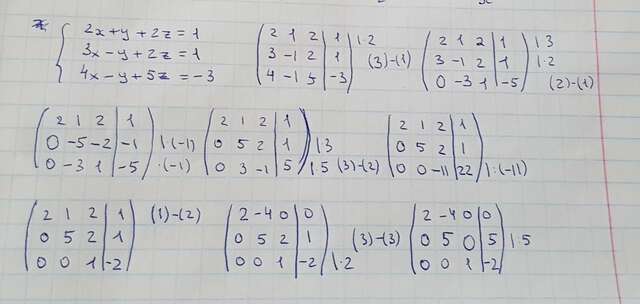 2x+y+2z=1
3x-y+2z=1
4x-y+5z=-3
2 1 2 | 1 | ·2
3 -1 2 | 1
4 -1 5 | -3
(3)-(1)
2 1 2 | 1 | 3
3 -1 2 | 1 | ·2
0 -3 1 | -5
(2)-(1)
2 1 2 | 1
0 -5 -2 | -1 | ·(-1)
0 -3 1 | -5 ·(-1)
2 1 2 | 1
0 5 2 | 1 | 3
0 3 -1 | 5 | 5 (3)-(2)
2 1 2 | 1
0 5 2 | 1
0 0 -11 | 22 | :(-11)
2 1 2 | 1
0 5 2 | 1
0 0 1 | -2
(1)-(2)
2 -4 0 | 0
0 5 2 | 1
0 0 1 | -2 | ·2
(3)-(3)
2 -4 0 | 0
0 5 0 | 5 | ·5
0 0 1 | -2